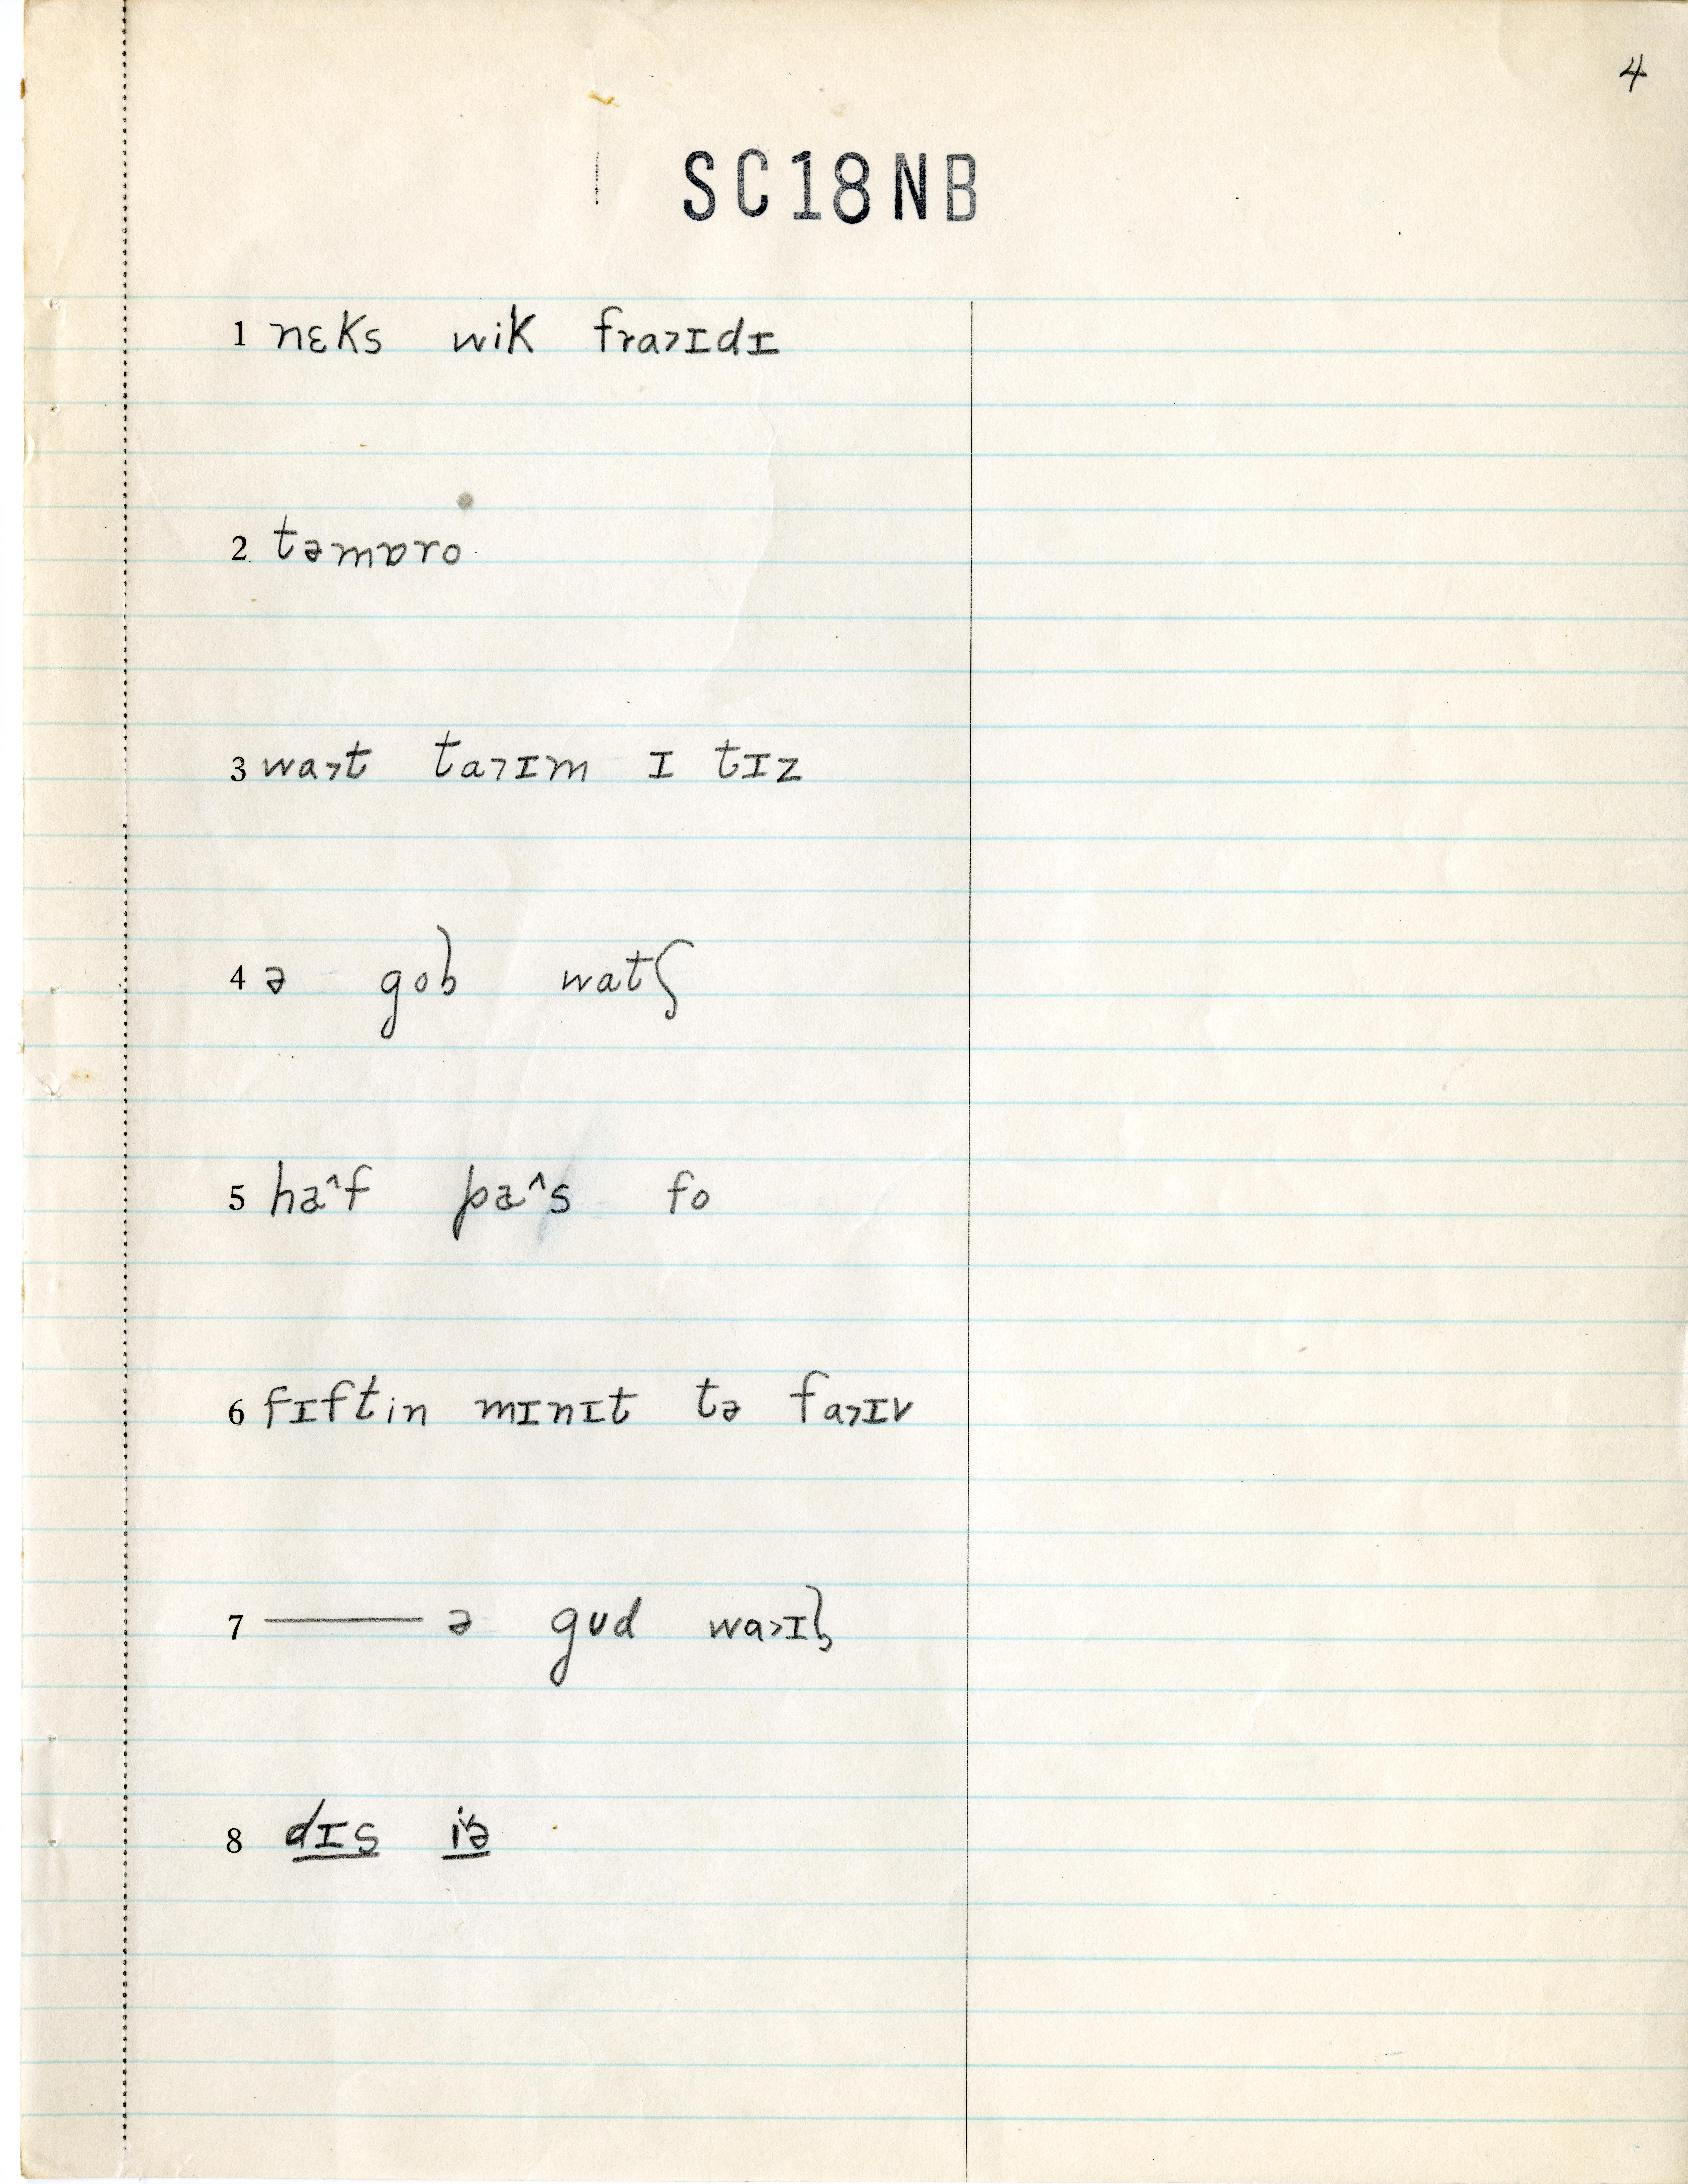 4
SC18NB
1 nɛks wik fra˃ɪdɪ
2. təmɒro
3 wa˃t ta˃ɪm ɪ tɪz
4 ə gol watʃ
5 ha^f pa^s fo
6 fɪftin mɪnɪt tə fa˃ɪv
7 —— ə gud wa˃ɪl
8 dɪs iə